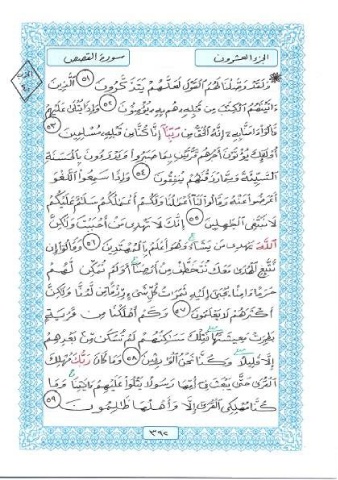 الجزء العشرون
سورة القصص
الحزب
٤٠
وَلَقَدْ وَصَّلْنَا لَهُمُ الْقَوْلَ لَعَلَّهُمْ يَتَذَكَّرُونَ ٥١ الَّذِينَ
ءَاتَيْنَاهُمُ الْكِتَابَ مِن قَبْلِهِ هُم بِهِ يُؤْمِنُونَ ٥٢ وَإِذَا يُتْلَى عَلَيْهِمْ
قَالُوا ءَامَنَّا بِهِ إِنَّهُ الْحَقُّ مِن رَّبِّنَا إِنَّا كُنَّا مِن قَبْلِهِ مُسْلِمِينَ ٥٣
أُولَئِكَ يُؤْتَوْنَ أَجْرَهُم مَّرَّتَيْنِ بِمَا صَبَرُوا وَيَدْرَءُونَ بِالْحَسَنَةِ
السَّيِّئَةَ وَمِمَّا رَزَقْنَاهُمْ يُنفِقُونَ ٥٤ وَإِذَا سَمِعُوا اللَّغْوَ
أَعْرَضُوا عَنْهُ وَقَالُوا لَنَا أَعْمَالُنَا وَلَكُمْ أَعْمَالُكُمْ سَلَامٌ عَلَيْكُمْ
لَا نَبْتَغِي الْجَاهِلِينَ ٥٥ إِنَّكَ لَا تَهْدِي مَنْ أَحْبَبْتَ وَلَكِنَّ
اللَّهَ يَهْدِي مَن يَشَاءُ وَهُوَ أَعْلَمُ بِالْمُهْتَدِينَ ٥٦ وَقَالُوا إِن
نَّتَّبِعِ الْهُدَى مَعَكَ نُتَخَطَّفْ مِنْ أَرْضِنَا أَوَلَمْ نُمَكِّن لَّهُمْ
حَرَمًا ءَامِنًا يُجْبَى إِلَيْهِ ثَمَرَاتُ كُلِّ شَيْءٍ رِّزْقًا مِّن لَّدُنَّا وَلَكِنَّ
أَكْثَرَهُمْ لَا يَعْلَمُونَ ٥٧ وَكَمْ أَهْلَكْنَا مِن قَرْيَةٍ
بَطِرَتْ مَعِيشَتَهَا فَتِلْكَ مَسَاكِنُهُمْ لَمْ تُسْكَن مِّن بَعْدِهِمْ
إِلَّا قَلِيلًا وَكُنَّا نَحْنُ الْوَارِثِينَ ٥٨ وَمَا كَانَ رَبُّكَ مُهْلِكَ
الْقُرَى حَتَّى يَبْعَثَ فِي أُمِّهَا رَسُولًا يَتْلُوا عَلَيْهِمْ ءَايَاتِنَا وَمَا
كُنَّا مُهْلِكِي الْقُرَى إِلَّا وَأَهْلُهَا ظَالِمُونَ ٥٩
٣٩٢